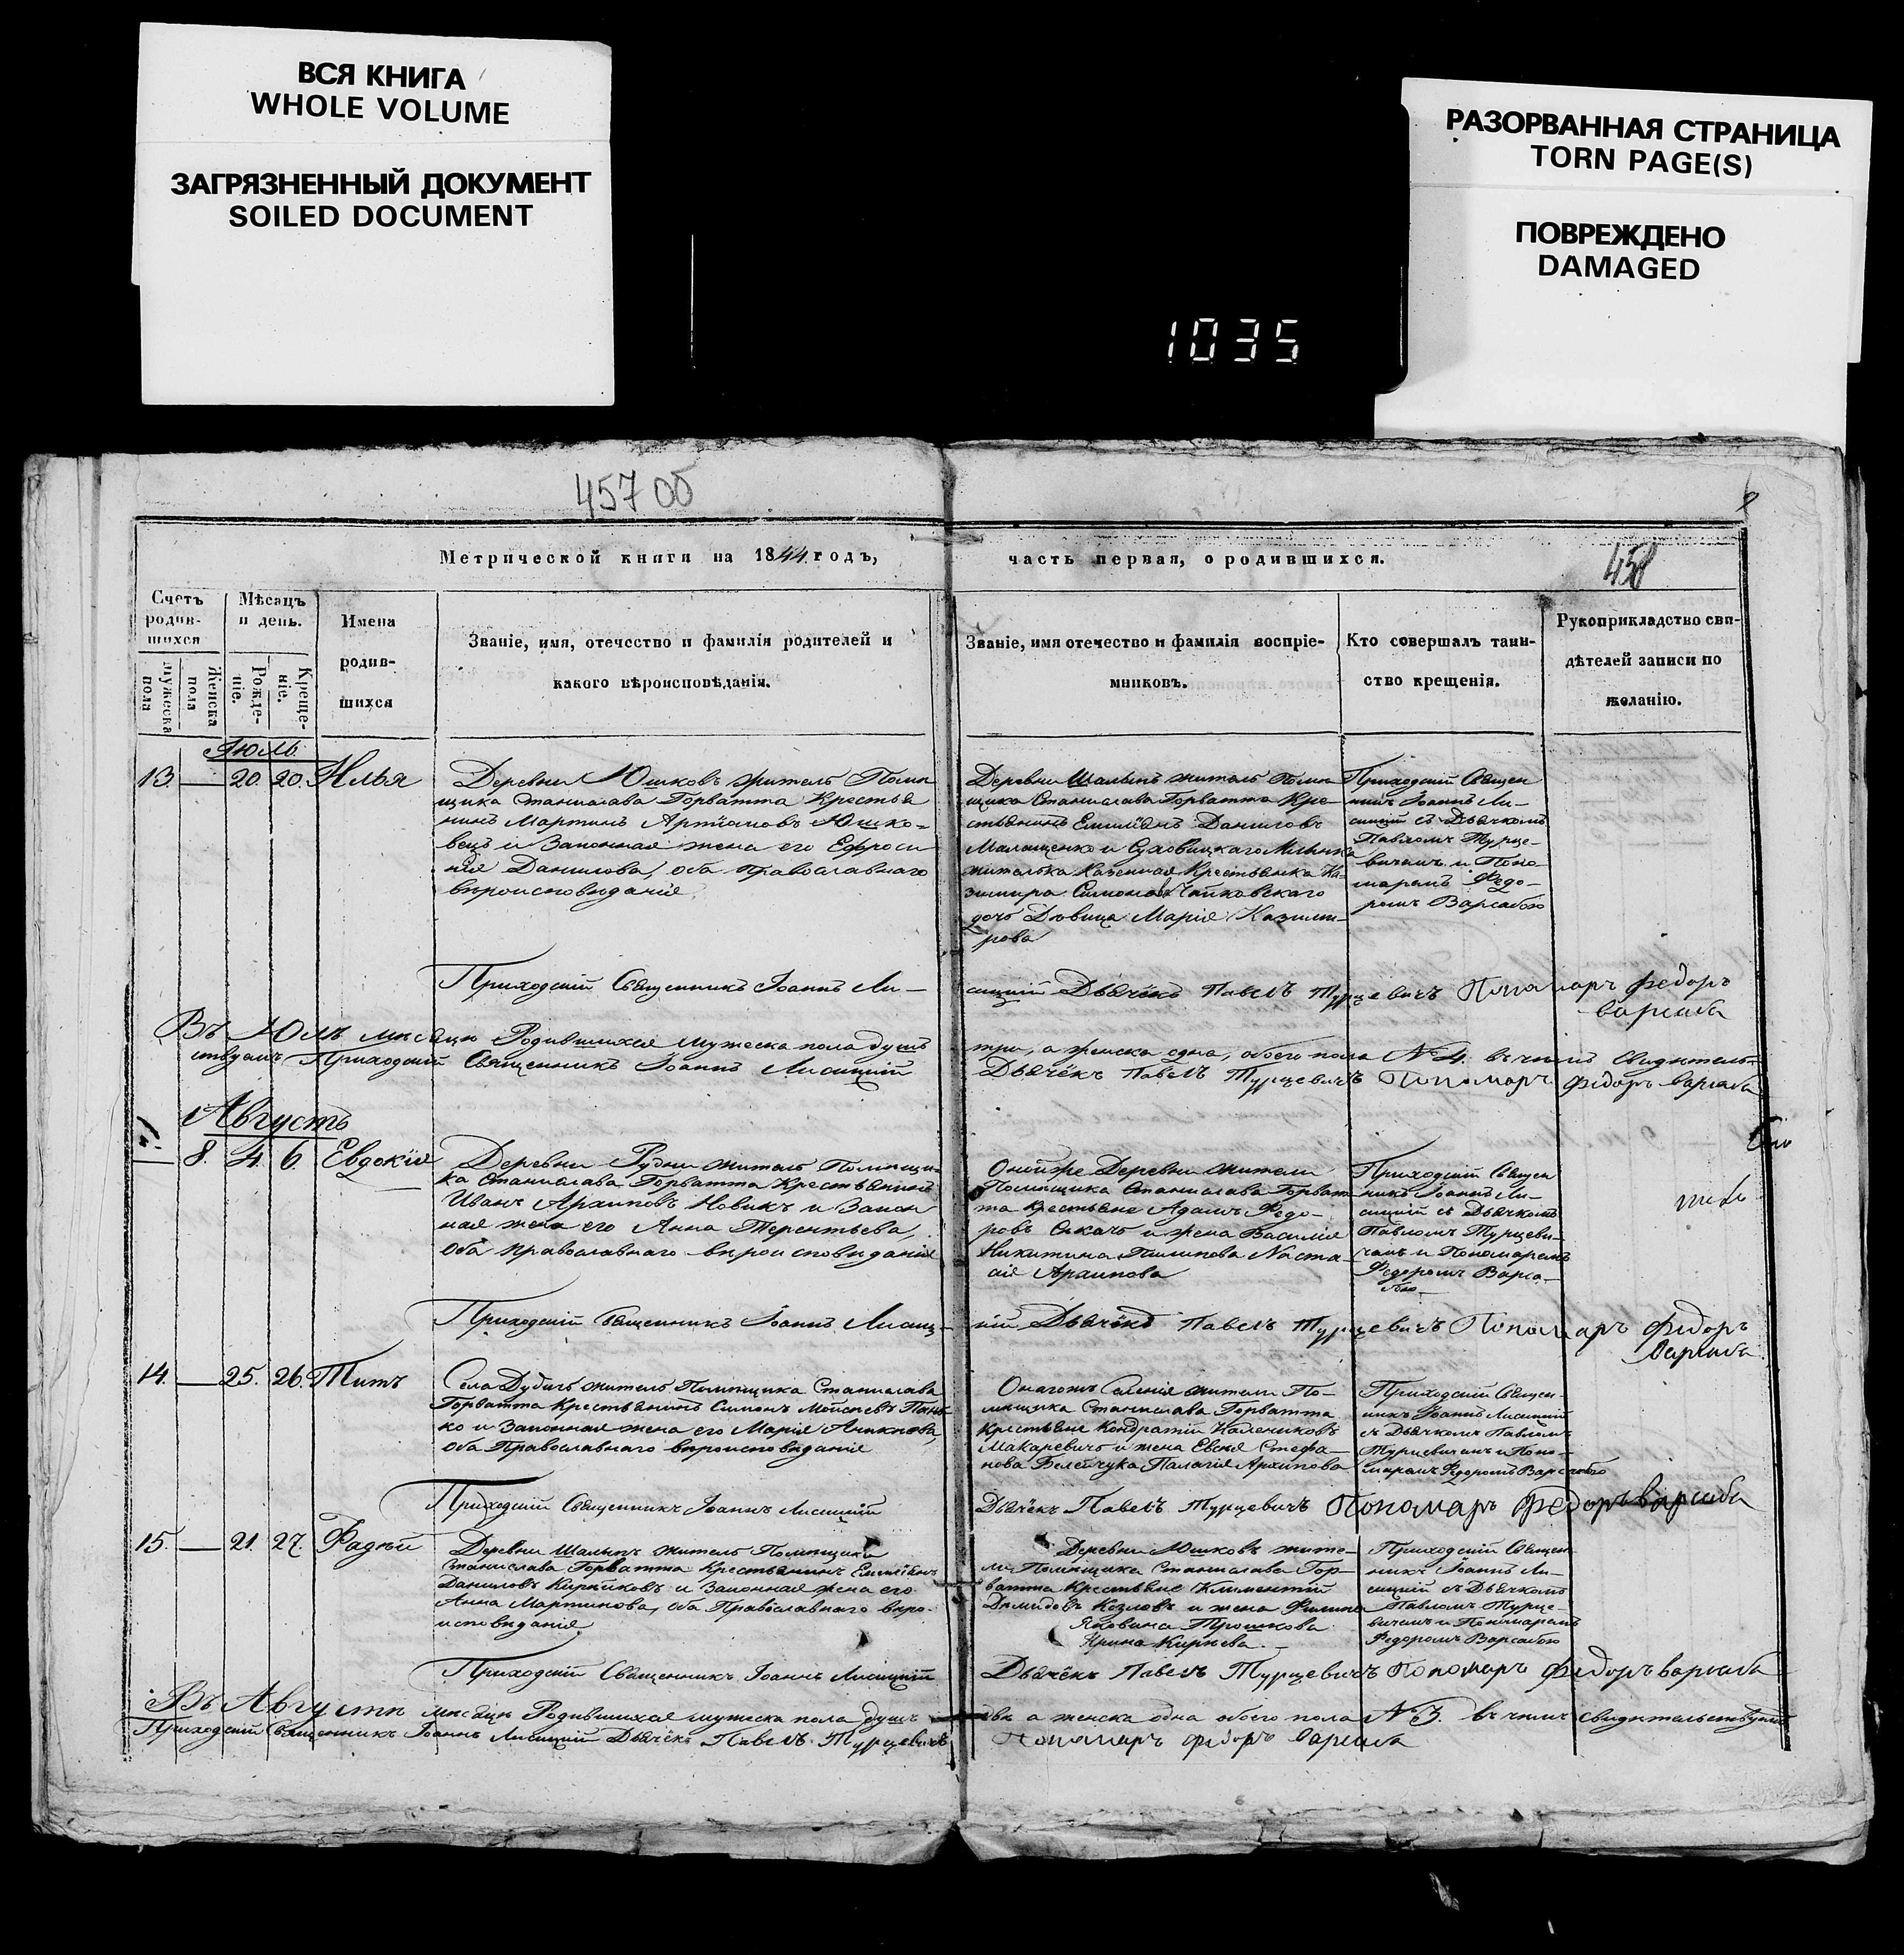 ВСЯ КНИГА
WHOLE VOLUME
ЗАГРЯЗНЕННЫЙ ДОКУМЕНТ
SOILED DOCUMENT
РАЗОРВАННАЯ СТРАНИЦА
TORN PAGE(S)
ПОВРЕЖДЕНО
DAMAGED
1035
457 об
Метрической книги на 1844 годъ,
часть первая, о родившихся.
458
Счетъ родив-шихся
мужеска пола
Женска пола
Мѣсацъ и день.
Рожде-ніе.
Креще-ніе.
Имена
родив-
шихся
Званіе, имя, отечество и фамилія родителей и
какого вѣроисповѣданія.
Званіе, имя отечество и фамилія воспріе-
мниковъ.
Кто совершалъ таин-
ство крещенія.
Рукоприкладство сви-
дѣтелей записи по
желанію.
Іюль
13. — 20. 20. Илья
Деревни Юшковъ житель Помѣ
щика Станислава Горватта Крестья
нинъ Мартинъ Артіомовъ Юшко=
вецъ и Законная жена его Ефроси
нія Данилова, оба православнаго
вѣроисповѣданія
Деревни Шалынъ житель Помѣ
щика Станислава Горватта Кре-
стьянинъ Емиліянъ Даниловъ
и
жителька Казенная Крестьянка Ка-
зимира Чайковскаго
дочь Дѣвица Марія Казими-
рова
Приходскій Священ
никъ Іоаннъ Ли-
сицкій съ Дьячкомъ
Павломъ Турце-
вичемъ и Поно-
маремъ Федо-
ромъ Варсабою
Приходскій Священникъ Іоаннъ Ли-
сицкій Дьячёкъ Павелъ Турцевичъ Пономаръ Федоръ
варсаба
Въ Юлѣ мѣсяцѣ Родившихся мужеска пола душъ
три, а женска одна, обоего пола №4. въ чемъ свидѣтель-
ствуемъ Приходскій Священникъ Іоаннъ Лисицкій
Дьячёкъ Павелъ Турцевичъ Пономаръ федоръ варсаба
Августъ
— 8. 4. 6. Евдокія
Деревни Рудни житель Помѣщи-
ка Станислава Горватта Крестьянинъ
Иванъ Архиповъ Новикъ и Закон
ная жена его Анна Терентьева,
оба православнаго вѣроисповѣданія
Онойже Деревни жители
Помѣщика Станислава Горват-
та Крестьяне Адамъ Федо-
ровъ и жена Василія
Никитина Наста-
сія Архипова
Приходскій Священ
никъ Іоаннъ Ли-
сицкій съ Дьячкомъ
Павломъ Турцеви-
чемъ и Пономаремъ
Федоромъ Варса-
бою
Приходскій Священникъ Іоаннъ Лисиц-
кій Дьячёкъ Павелъ Турцевичъ Пономаръ федоръ
варсаба
14. — 25. 26. Титъ
Села Дудичъ житель Помѣщика Станислава
Горватта Крестьянинъ Симонъ Моисеевъ Пань-
ко и Законная жена его Марія
оба Православнаго вѣроисповѣданія
Онагожъ Селенія жители По-
мѣщика Станислава Горватта
Крестьяне Кондратій Калениковъ
Макаревичъ и жена Евсея Стефа-
нова Белейчука Палагія Архипова
Приходскій Священ-
никъ Іоаннъ Лисицкій
съ Дьячкомъ Павломъ
Турцевичемъ и Поно-
маремъ Федоромъ Варсабою
Приходскій Священникъ Іоаннъ Лисицкій
Дьячёкъ Павелъ Турцевичъ Пономаръ федоръ варсаба
15. — 21. 27. Фадѣй
Деревни Шалынъ житель Помѣщика
Станислава Горватта Крестьянинъ Емиліянъ
Даниловъ и Законная жена его
Анна Мартинова, оба Православнаго вѣро-
исповѣданія
Деревни Юшковъ жите-
ли Помѣщика Станислава Гор-
ватта Крестьяне Климентій
Демидовъ Козловъ и жена Филипа
Яковина Трошкова
Ирина
Приходскій Священ
никъ Іоаннъ Ли-
сицкій съ Дьячкомъ
Павломъ Турце-
вичемъ и Пономаремъ
Федоромъ Варсабою
Приходскій Священникъ Іоаннъ Лисицкій
Дьячёкъ Павелъ Турцевичъ Пономаръ федоръ варсаба
Въ Августѣ мѣсяцѣ Родившихся мужеска пола душъ
два а женска одна обоего пола №3. въ чемъ свидѣтельствуемъ
Приходскій Священникъ Іоаннъ Лисицкій Дьячёкъ Павелъ Турцевичъ
Пономаръ федоръ варсаба